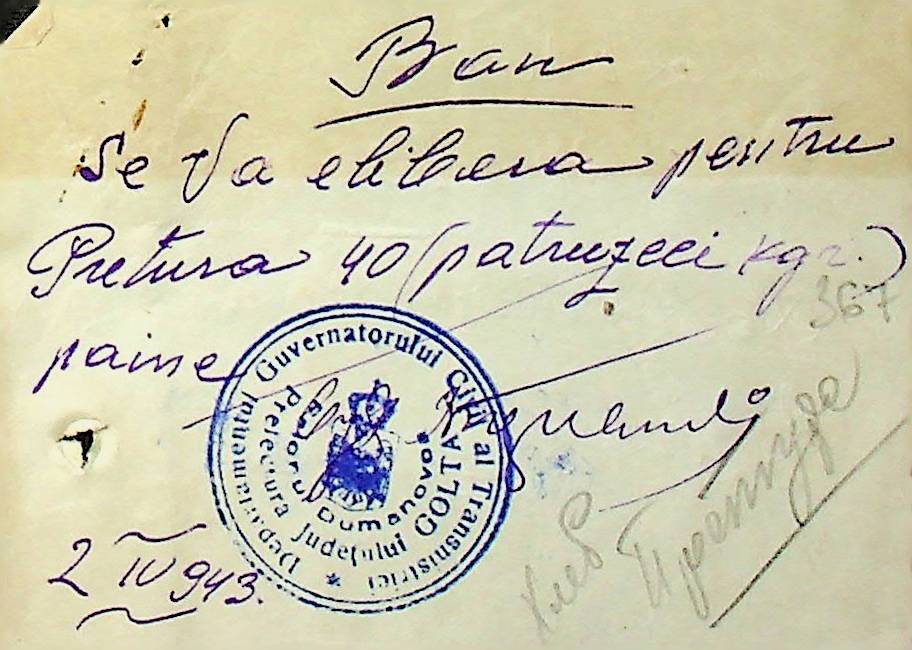 Bon
Se va elibera pentru
Pretura 40 (patruzeci kgr.)
paine
367
Departamentul Guvernatorului Civil al Transnistriei
Prefectura Județului GOLTA
Raionul Dumanovca
хлеб
Претура
2 IV 943.